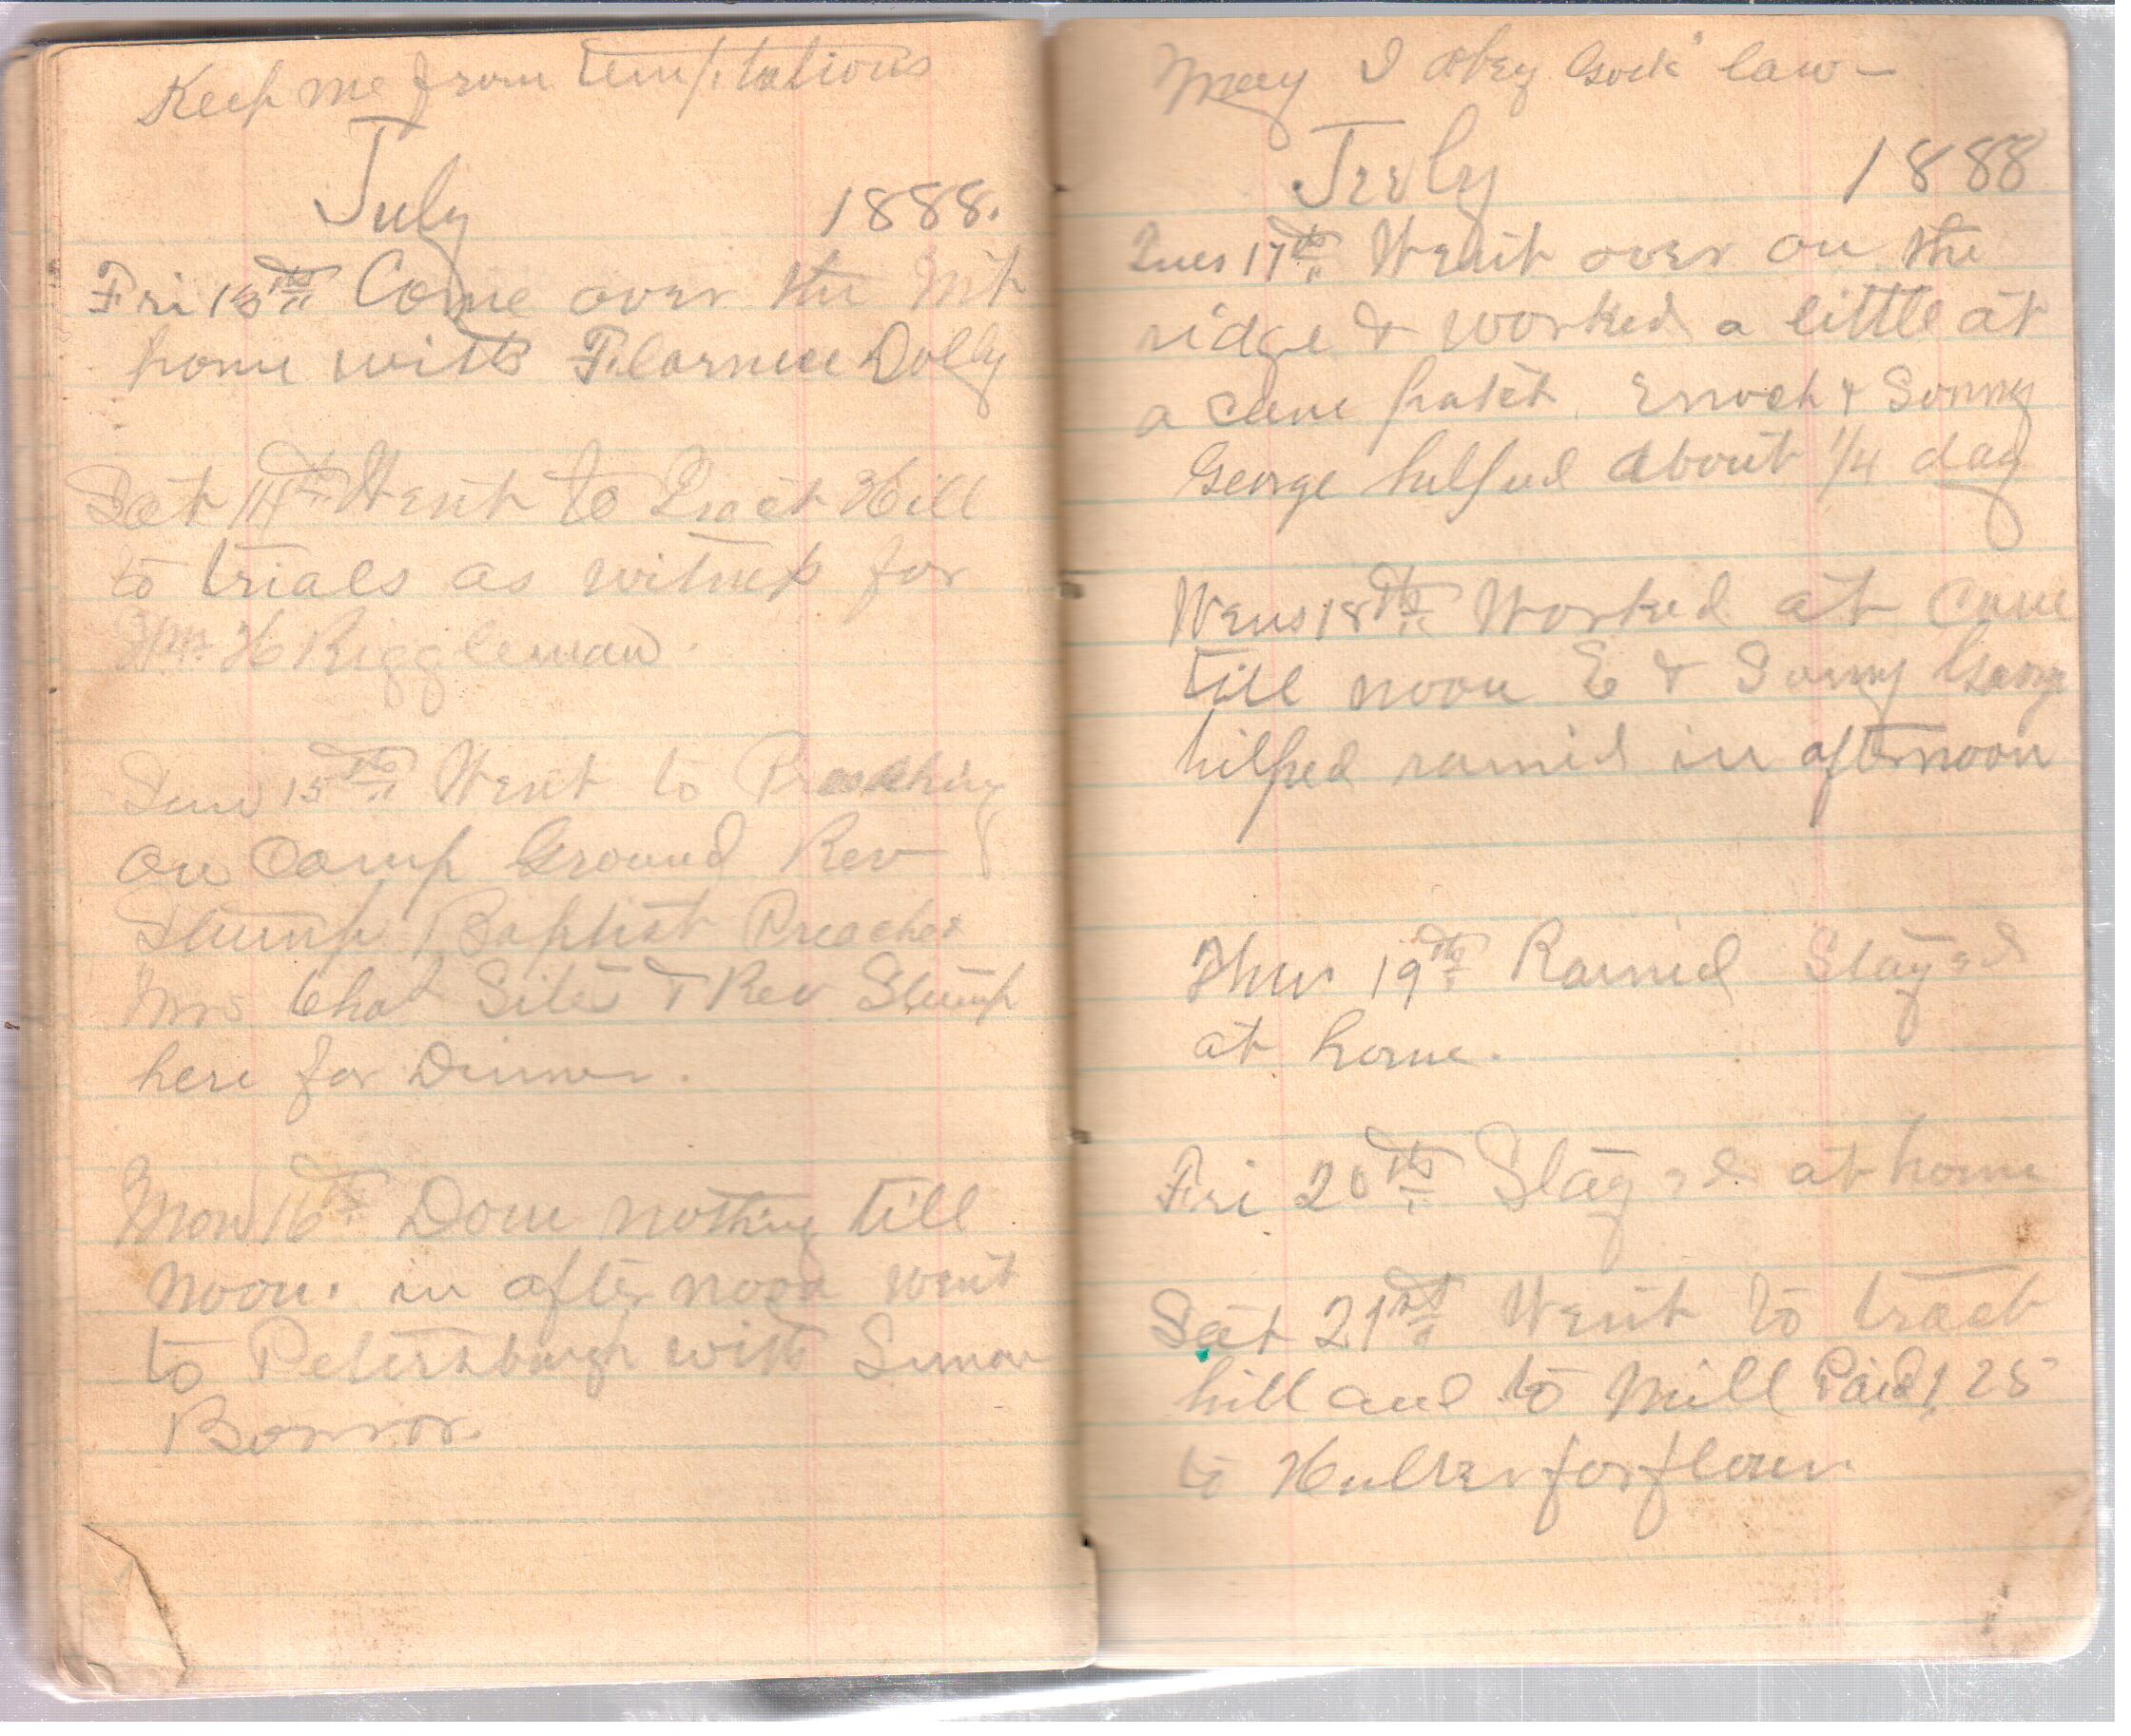 Keep me from temptations
July 1888.
Fri 13th Come over the Mt
home with Florence Dolly
Sat 14th Went to Tract Hill
to trials as witness for
Wm H Riggleman.
Sun 15th Went to Preaching
on Camp Ground Rev
Stump Baptist Preacher
Mrs Chas Sites & Rev Stump
here for Dinner.
Mon 16th Done nothing till
noon. in after noon went
to Petersburgh with Simon
May I obey Gods' law—
July 1888
Tues 17th Went over on the
ridge & worked a little at
a cane patch. Enoch & Sonny
George helped about 1/4 day
Wens 18th Worked at Cane
till noon E & Sonny George
hilped rained in afternoon
Thur 19th Rained Stayed
at home.
Fri 20th Stayed at home
Sat 21st Went to tract
hill and to Mill Paid 1.25
to Hulver for flour.